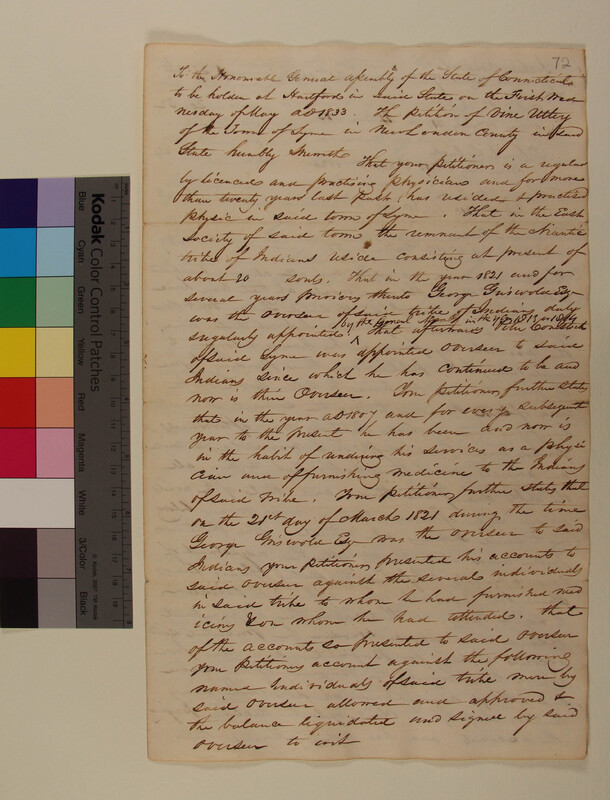 72
To the Honourable General Assembly of the State of Connecticut
to be holden at Hartford in said State on the First Wed
nesday of May AD 1833. The petition of Vine Utley
of the Town of Lyme in New London County in said
State humbly sheweth That your petitioner is a regular
ly licenced and practising physician and for more
than twenty years last past has resided & practised
physic in said town of Lyme. That in the East
Society of said town the remnant of the Niantic
tribe of Indians reside consisting at present of
about 20 souls. That in the year 1821 and for
several years previous thereto George Griswold Esq
was the overseer of said tribe of Indians duly
by the General Assembly in the year
regularly appointed. That afterwards Peter Comstock
of said Lyme was ^ appointed overseer to said
Indians since which he has continued to be and
now is their Overseer. Your petitioner further states
that in the year AD 1807 and for every subsequent
year to the present he has been and now is
in the habit of rendering his services as a physi
cian and of furnishing medicine to the Indians
of said tribe. Your petitioner further states that
on the 21st day of March 1821 during the time
George Griswold Esq was the overseer to said
Indians your petitioner presented his accounts to
said overseer against the several individuals
in said tribe to whom he had furnished med
icine & on whom he had attended. that
of the accounts so presented to said overseer
your petitioners account against the following
named Individuals of said tribe were by
said overseer allowed and approved &
the balance liquidated and signed by said
overseer to wit
Kodak Color Control Patches
Blue
Cyan
Green
Yellow
Red
Magenta
White
3/Color
Black